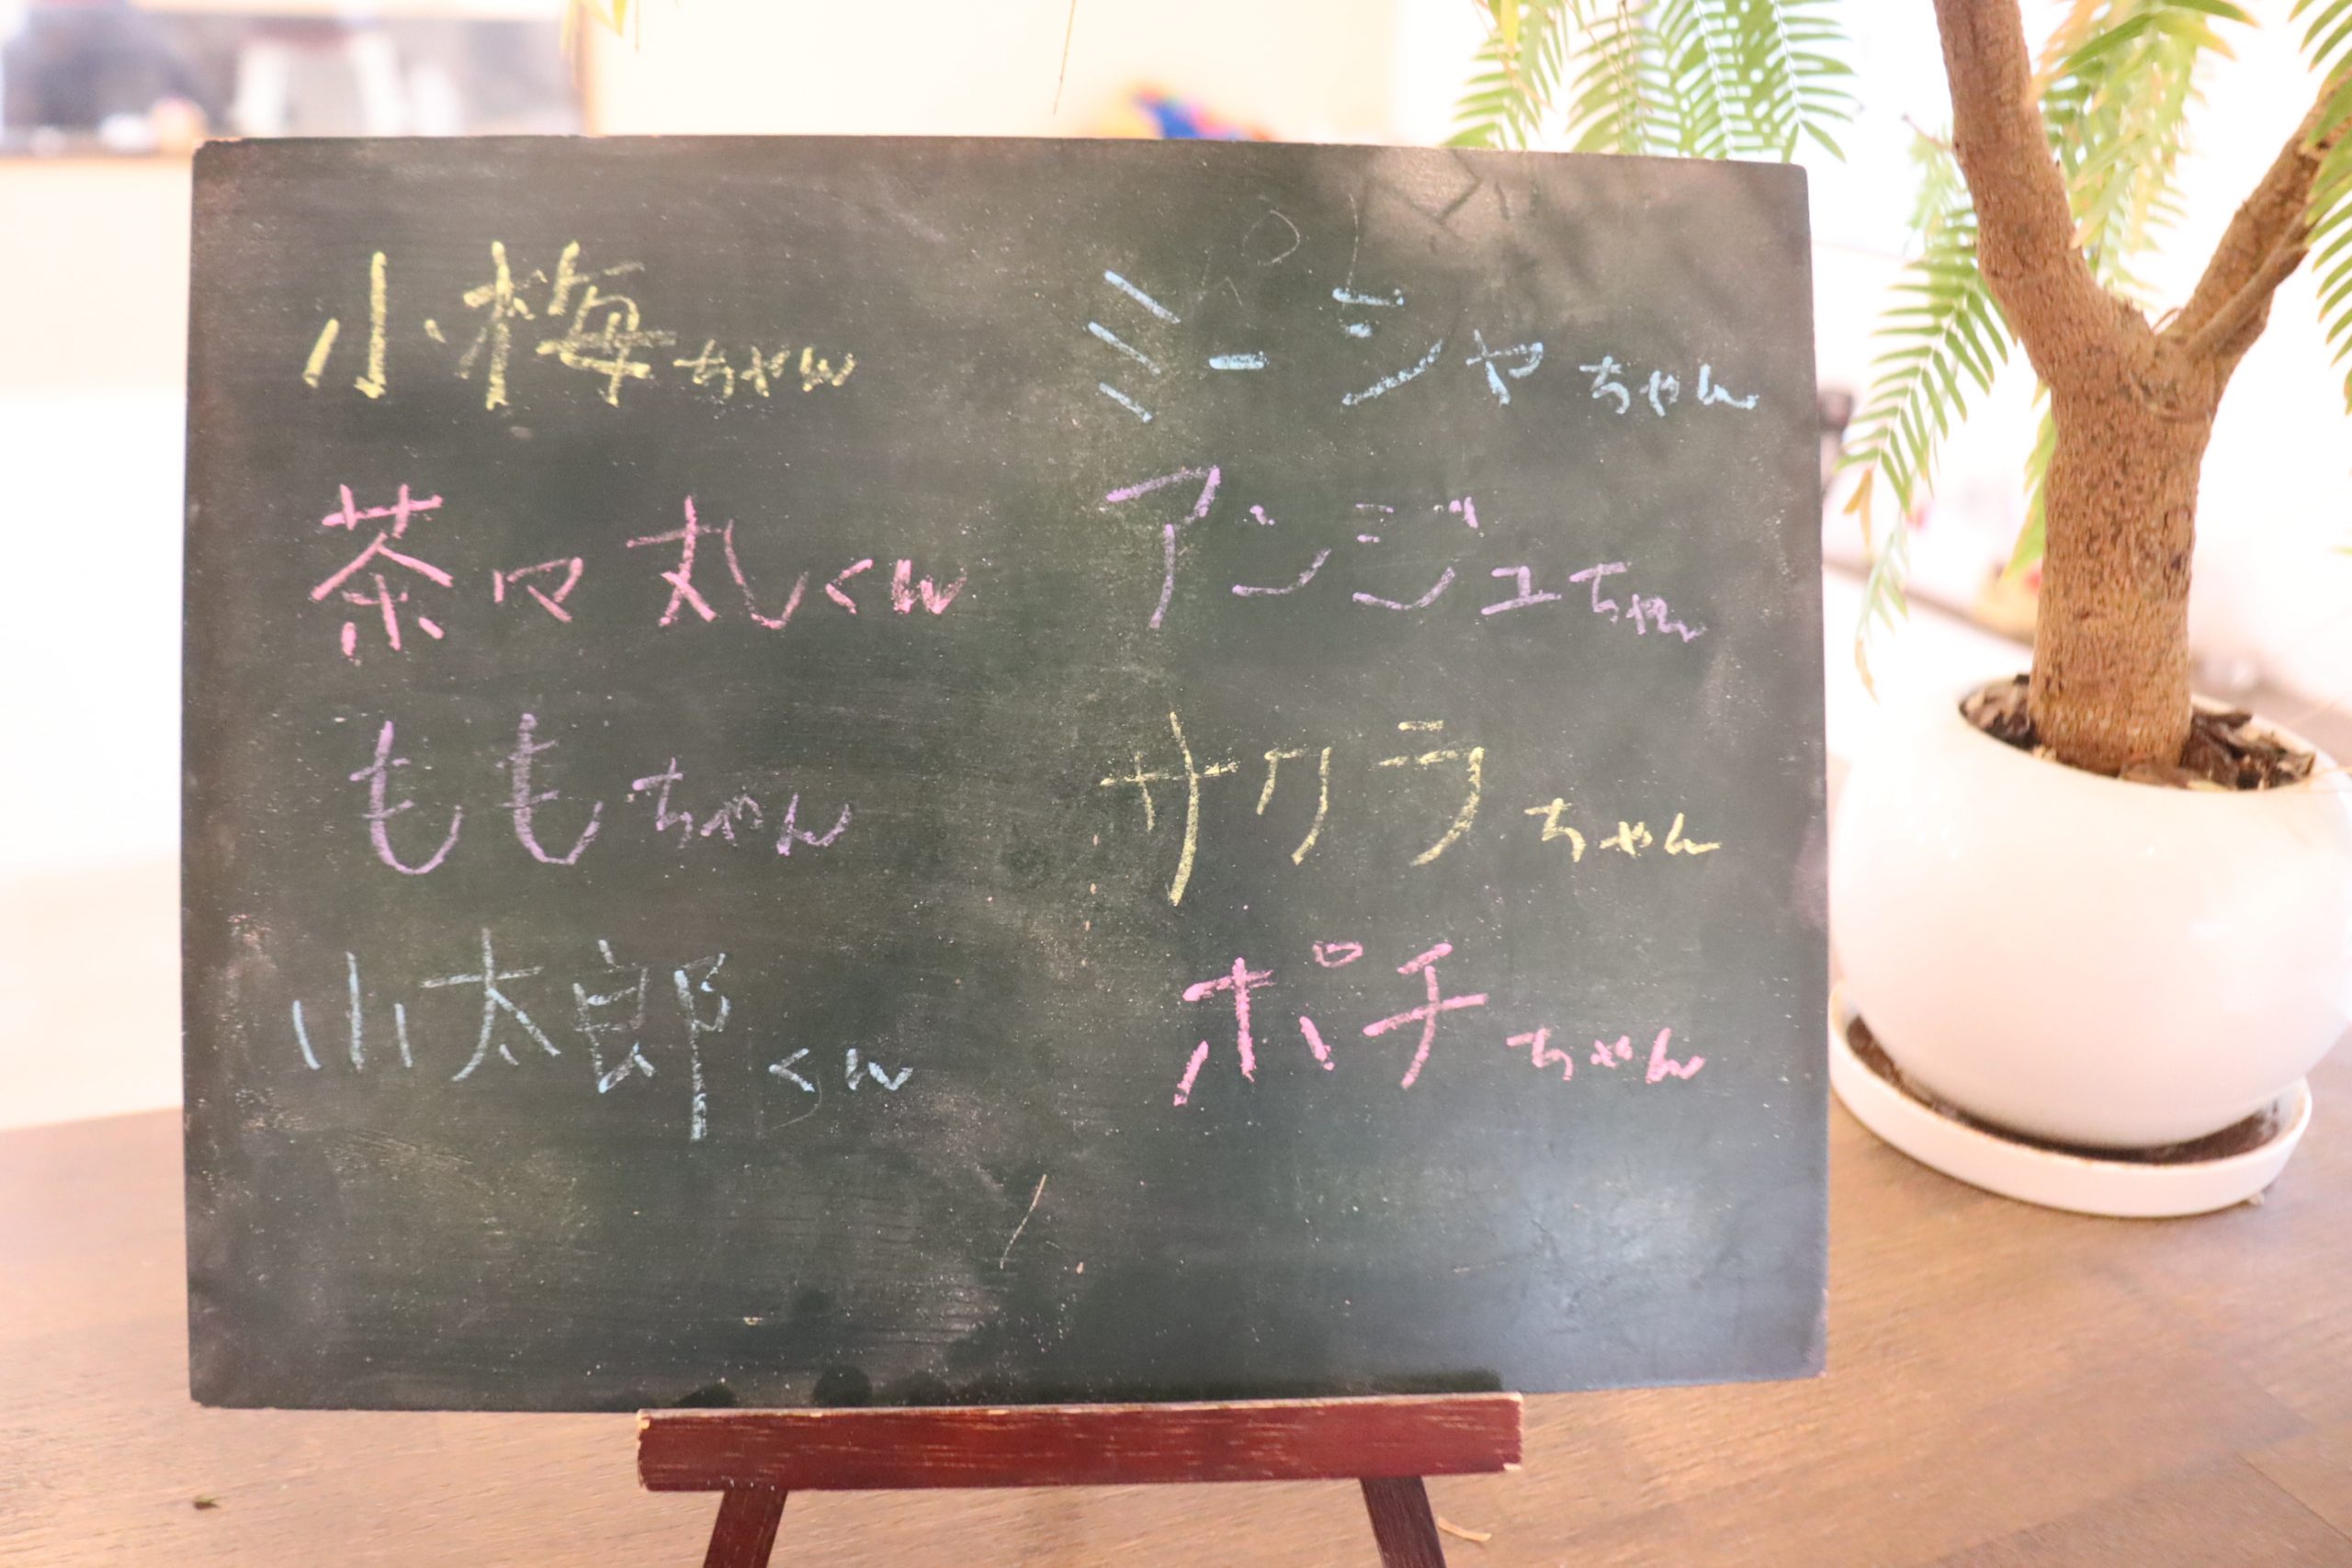 小梅ちゃん
茶々丸くん
ももちゃん
小太郎くん
ミーシャちゃん
アンジュちゃん
サクラちゃん
ポチちゃん